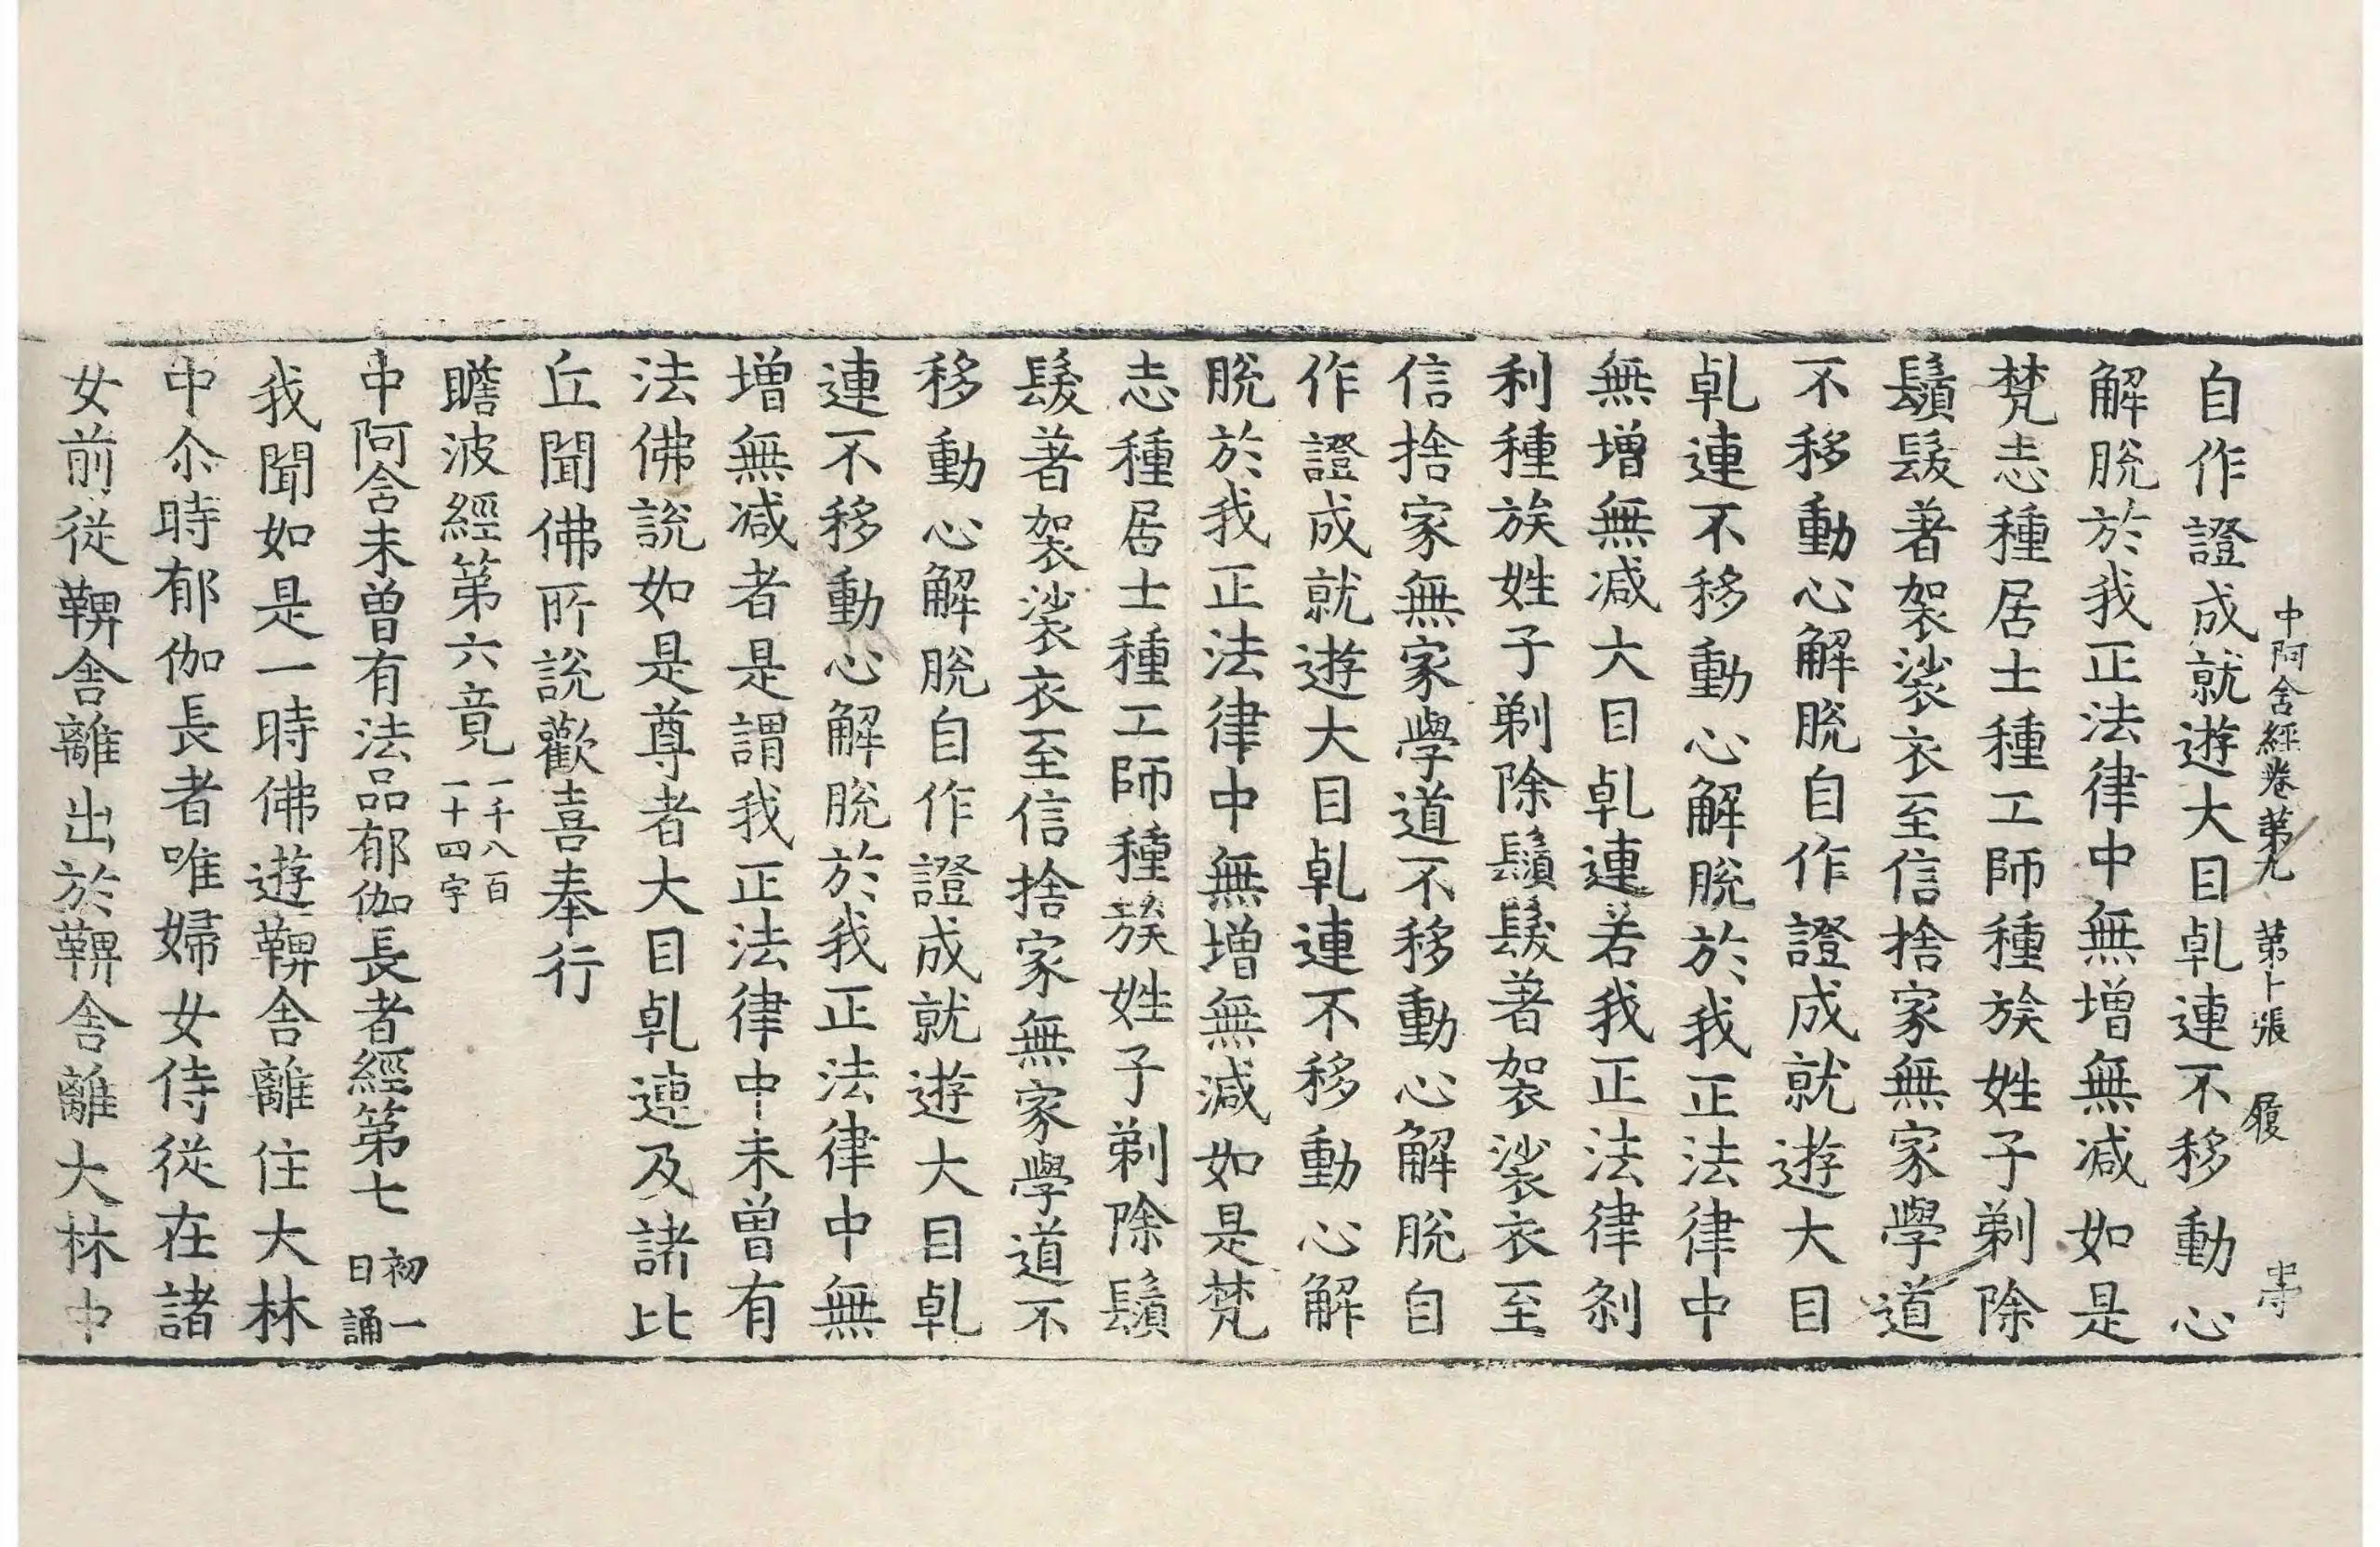 中阿含經卷第九　第卜張　履　中㝵
自作證成就遊大目乹連不移動心
解脫於我正法律中無增無减如是
梵志種居士種工師種族姓子剃除
鬚髮著袈裟衣至信捨家無家學道
不移動心解脫自作證成就遊大目
乹連不移動心解脫於我正法律中
無增無减大目乹連若我正法律剎
利種族姓子剃除鬚髮著袈裟衣至
信捨家無家學道不移動心解脫自
作證成就遊大目乹連不移動心解
脫於我正法律中無增無減如是梵
志種居士種工師種族姓子剃除鬚
髮著袈裟衣至信捨家無家學道不
移動心解脫自作證成就遊大目乹
連不移動心解脫於我正法律中無
增無减者是謂我正法律中未曾有
法佛說如是尊者大目乹連及諸比
丘聞佛所說歡喜奉行
瞻波經第六竟一千八百一十四字
中阿含未曾有法品郁伽長者經第七初一日誦
我聞如是一時佛遊鞞舍離住大林
中尒時郁伽長者唯婦女侍從在諸
女前從鞞舍離出於鞞舍離大林中